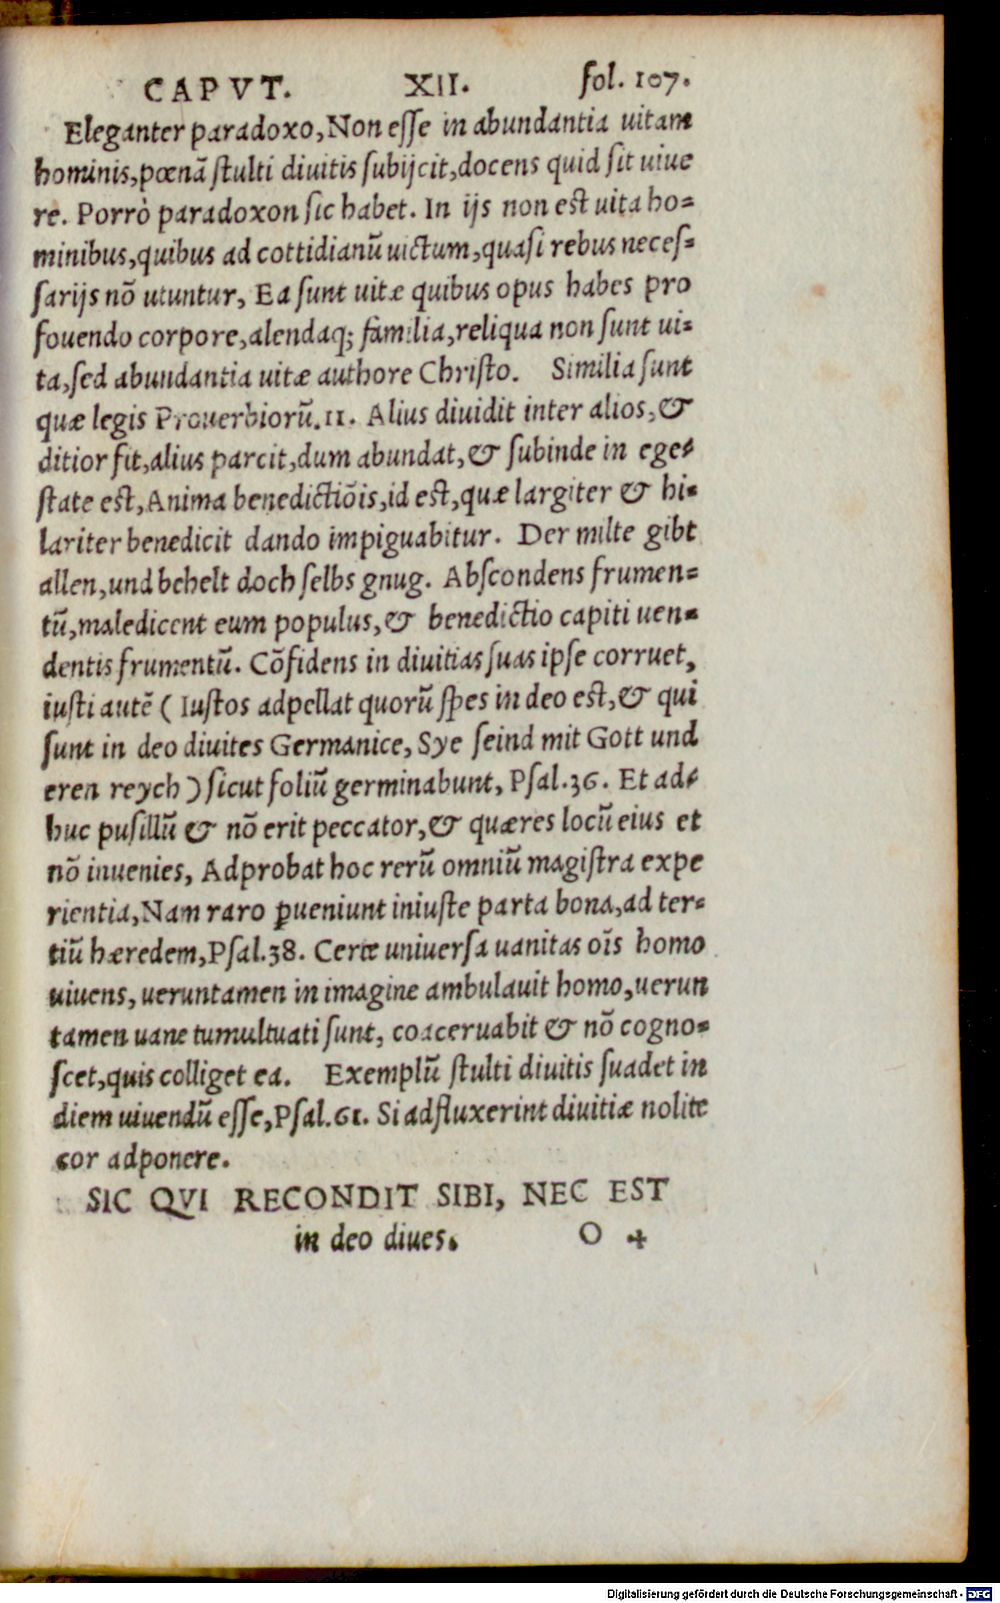 CAPVT. XII. fol. 107.
Eleganter paradoxo, Non eſſe in abundantia uitam
hominis, pœnã ſtulti diuitis ſubijcit, docens quid ſit uiue
re. Porrò paradoxon ſic habet. In ijs non eſt uita ho=
minibus, quibus ad cottidianũ uictum, quaſi rebus neceſ=
ſarijs nõ utuntur, Ea ſunt uitæ quibus opus habes pro
fouendo corpore, alendaq; familia, reliqua non ſunt ui=
ta, ſed abundantia uitæ authore Chriſto. Similia ſunt
quæ legis Prouerbiorũ. 11. Alius diuidit inter alios, &
ditior fit, alius parcit, dum abundat, & ſubinde in ege=
ſtate eſt, Anima benedictiõis, id eſt, quæ largiter & hi=
lariter benedicit dando impiguabitur. Der milte gibt
allen, und behelt doch ſelbs gnug. Abſcondens frumen=
tũ, maledicent eum populus, & benedictio capiti uen=
dentis frumentũ. Cõfidens in diuitias ſuas ipſe corruet,
iuſti autẽ ( Iuſtos adpellat quorũ ſpes in deo eſt, & qui
ſunt in deo diuites Germanice, Sye ſeind mit Gott und
eren reych ) ſicut foliũ germinabunt, Pſal. 36. Et ad=
huc puſillũ & nõ erit peccator, & quæres locũ eius et
nõ inuenies, Adprobat hoc rerũ omniũ magiſtra expe
rientia, Nam raro ꝑueniunt iniuſte parta bona, ad ter=
tiũ hæredem, Pſal. 38. Certe uniuerſa uanitas oĩs homo
uiuens, ueruntamen in imagine ambulauit homo, uerun
tamen uane tumultuati ſunt, coaceruabit & nõ cogno=
ſcet, quis colliget ea. Exemplũ ſtulti diuitis ſuadet in
diem uiuendũ eſſe, Pſal. 61. Si adfluxerint diuitiæ nolite
cor adponere.
SIC QVI RECONDIT SIBI, NEC EST
in deo diues. O ✢
Digitalisierung gefördert durch die Deutsche Forschungsgemeinschaft - DFG